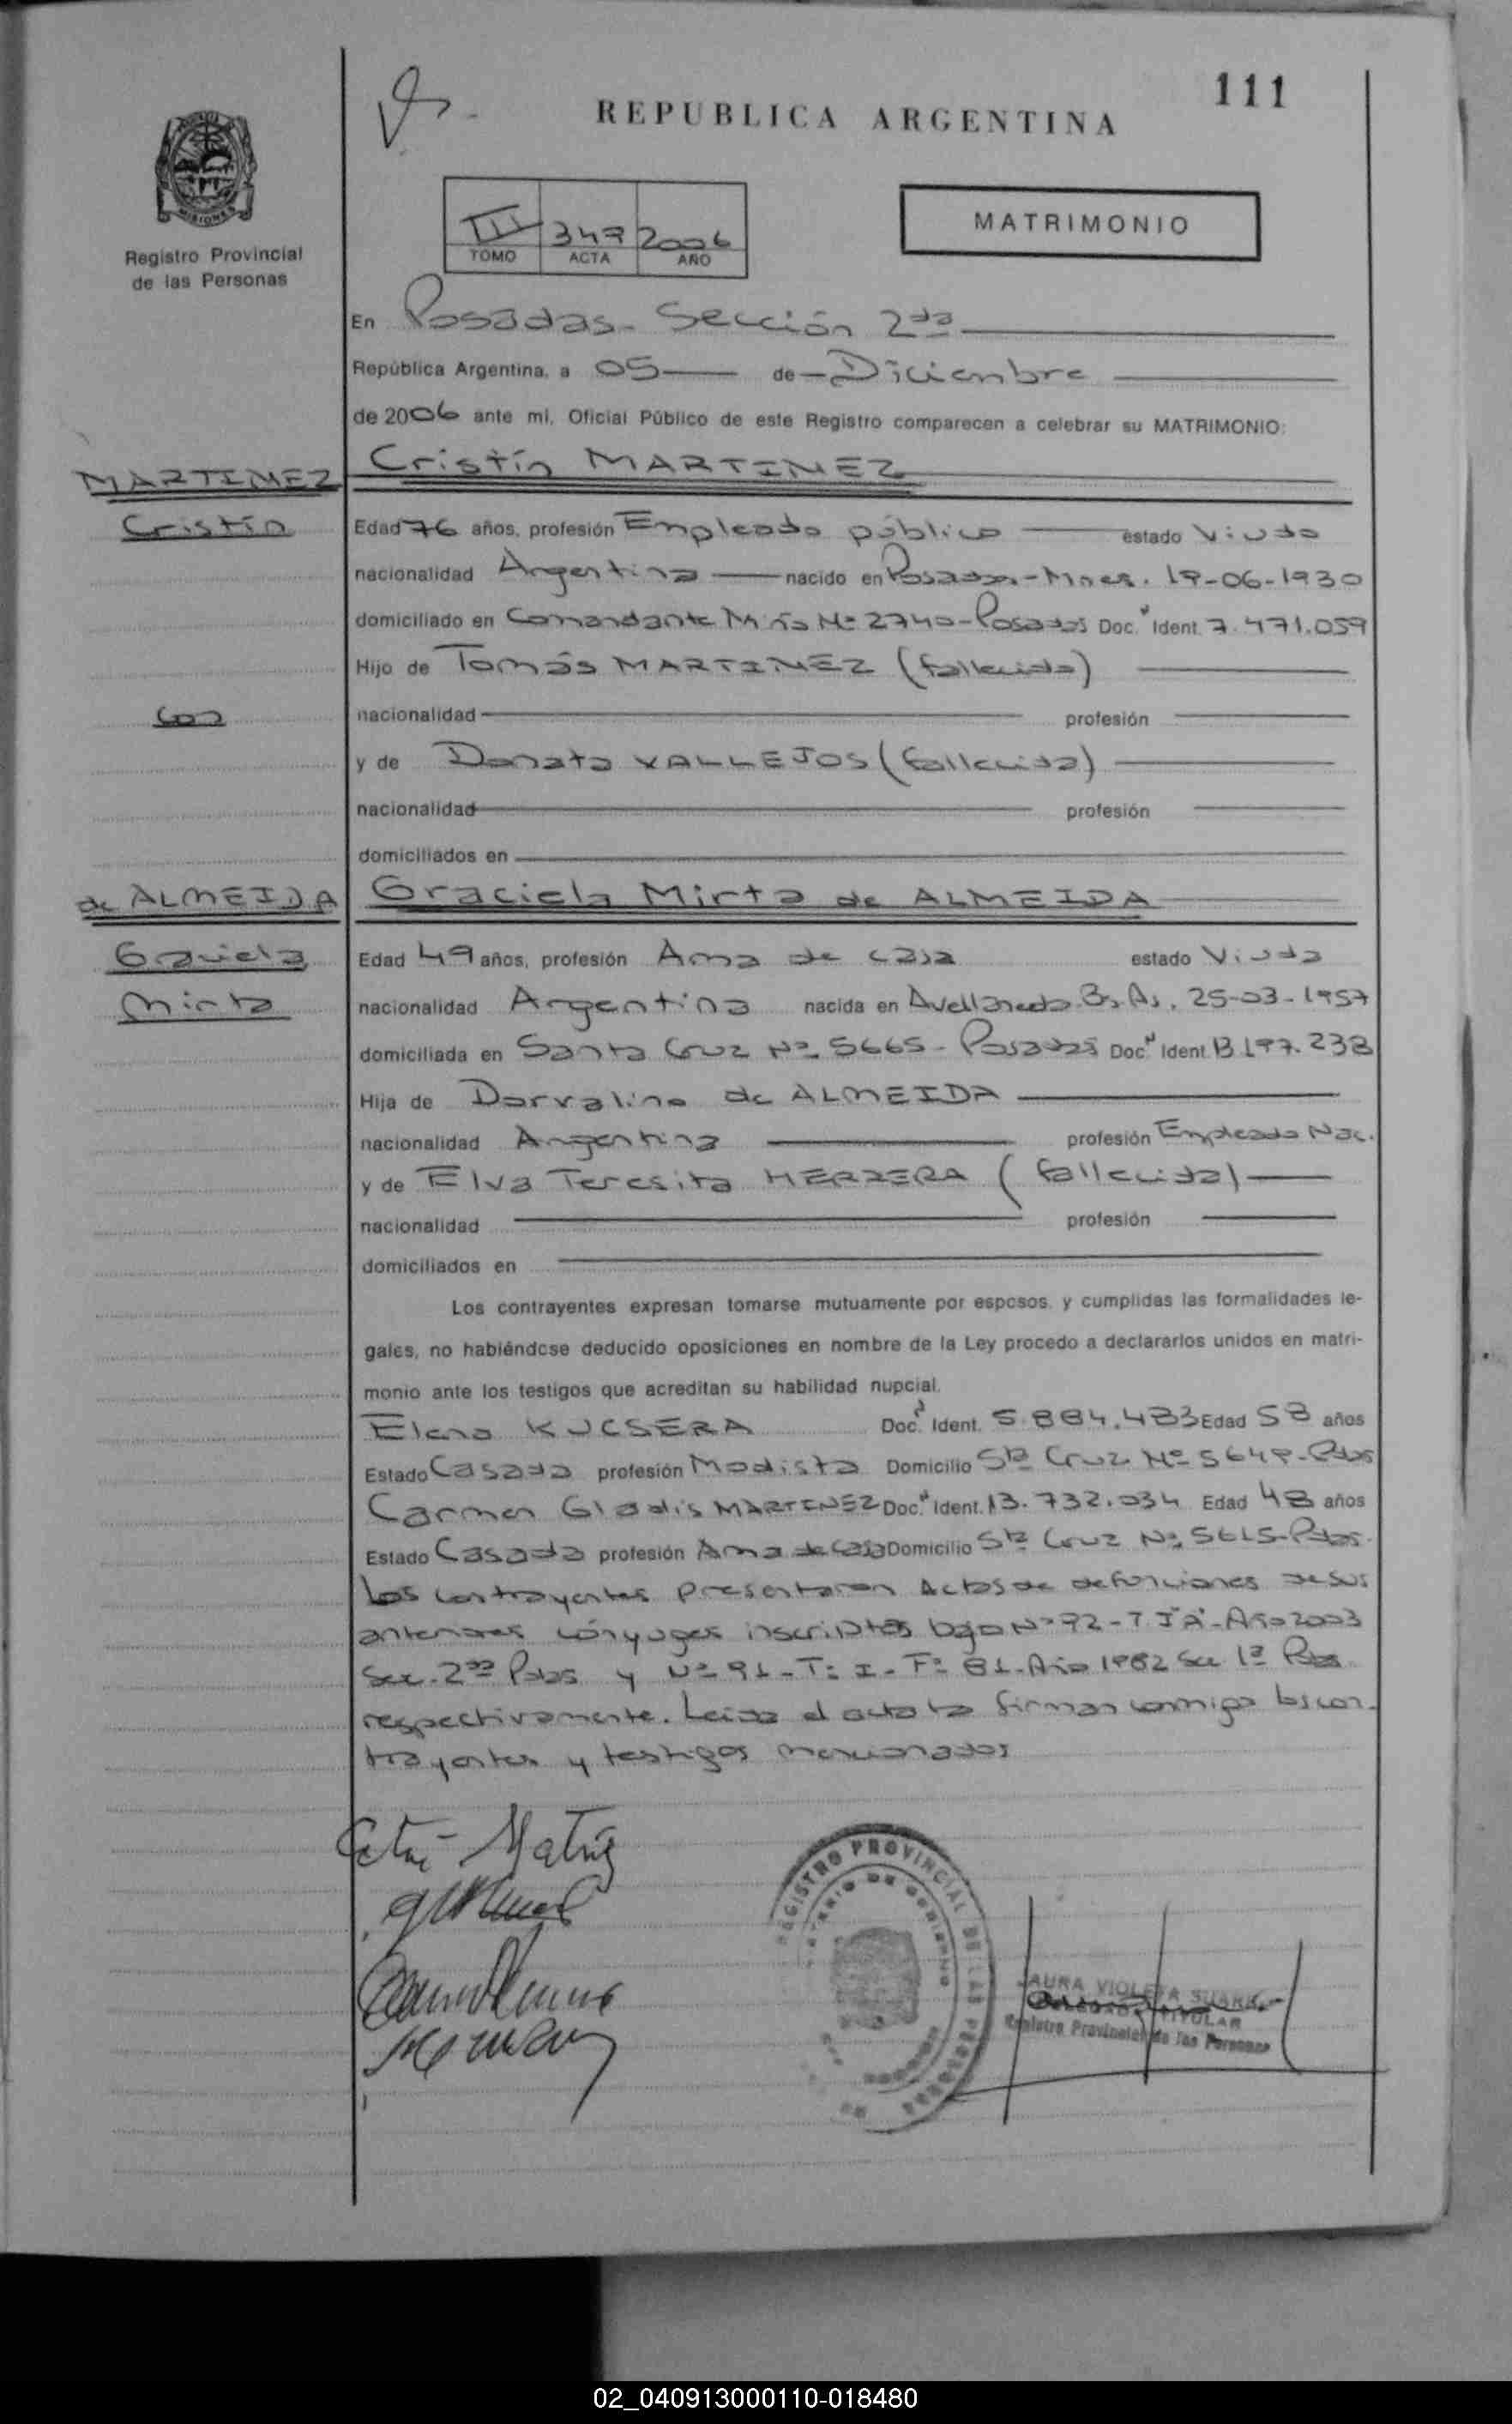 111
REPUBLICA ARGENTINA
MISIONES
Registro Provincial
de las Personas
III 347 2006
TOMO ACTA AÑO
MATRIMONIO
En Posadas - Sección 2da
República Argentina, a 05 de Diciembre
de 2006 ante mi, Oficial Público de este Registro comparecen a celebrar su MATRIMONIO:
MARTINEZ
Cristín
con
Cristín MARTINEZ
Edad 76 años, profesión Empleado público estado Viudo
nacionalidad Argentina nacido en Posadas-Mnes. 19-06-1930
domiciliado en Comandante Miño Nº 2740-Posadas Doc. Ident. 7.471.059
Hijo de Tomás MARTINEZ (fallecido)
nacionalidad profesión
y de Donata VALLEJOS (fallecida)
nacionalidad profesión
domiciliados en
de ALMEIDA
Graciela
Mirta
Graciela Mirta de ALMEIDA
Edad 49 años, profesión Ama de casa estado Viuda
nacionalidad Argentina nacida en Avellaneda Bs. As. 25-03-1957
domiciliada en Santa Cruz Nº 5665 - Posadas Doc. Ident. 13.197.238
Hija de Dorvalino de ALMEIDA
nacionalidad Argentina profesión Empleado Nac.
y de Elva Teresita HERRERA (fallecida)
nacionalidad profesión
domiciliados en
Los contrayentes expresan tomarse mutuamente por esposos, y cumplidas las formalidades le-
gales, no habiéndose deducido oposiciones en nombre de la Ley procedo a declararlos unidos en matri-
monio ante los testigos que acreditan su habilidad nupcial.
Elena KUCSERA Doc. Ident. 5.884.483 Edad 58 años
Estado Casada profesión Modista Domicilio Sta Cruz Nº 5649-Pdas
Carmen Gladis MARTINEZ Doc. Ident. 13.732.034 Edad 48 años
Estado Casada profesión Ama de Casa Domicilio Sta Cruz Nº 5615-Pdas.
Los contrayentes presentaron Actas de defunciones de sus
anteriores cónyuges inscriptas bajo Nº 92-T. I"A"-Año 2003
Sec. 2da Pdas y Nº 91-Tº I-Fº 81-Año 1982 Sec 1ª Pdas
respectivamente. Leida el acta la firman conmigo los con-
trayentes y testigos mencionados
REGISTRO PROVINCIAL DE LAS PERSONAS
LAURA VIOLETA SUAREZ
TITULAR
Registro Provincial de las Personas
02_040913000110-018480